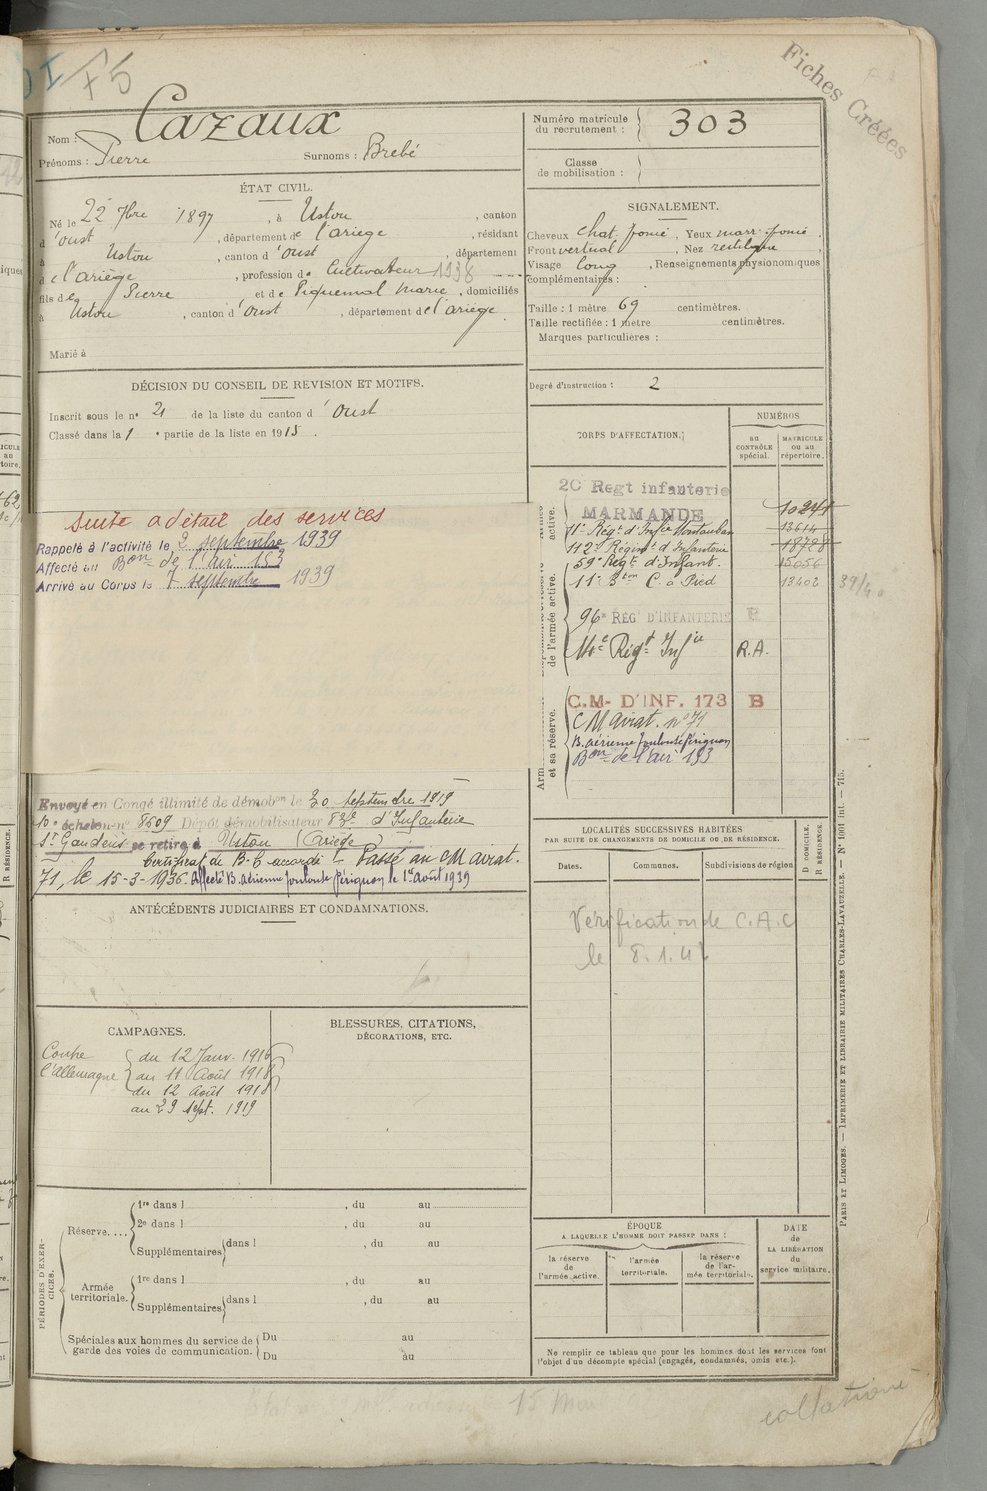 F5
Fiches Créées
Nom : Cazaux
Prénoms : Pierre Surnoms : Brebé
Numéro matricule du recrutement : 303
Classe de mobilisation :
ÉTAT CIVIL.
Né le 22 7bre 1897, à Ustou, canton
d'Oust, département de l'Ariège, résidant
à Ustou, canton d'Oust, département
de l'Ariège, profession de Cultivateur 1938
fils de Pierre et de Piquemal Marie, domiciliés
à Ustou, canton d'Oust, département de l'Ariège.
Marié à
SIGNALEMENT.
Cheveux chat. foncé, Yeux marr. foncé,
Front vertical, Nez rectiligne,
Visage long, Renseignements physionomiques
complémentaires :
Taille : 1 mètre 69 centimètres.
Taille rectifiée : 1 mètre centimètres.
Marques particulières :
Degré d'instruction : 2
DÉCISION DU CONSEIL DE REVISION ET MOTIFS.
Inscrit sous le n° 21 de la liste du canton d'Oust
Classé dans la 1 e partie de la liste en 1915.
Suite a détail des services
Rappelé à l'activité le 2 septembre 1939
Affecté au Bon de l'air 153
Arrivé au Corps le 7 septembre 1939
Envoyé en Congé illimité de démobon le 30 septembre 1919
10e échelon n° 8509 Dépôt démobilisateur 83e d'Infanterie
St Gaudens se retire à Ustou (Ariège)
Certificat de B. C accordé. Passé au CM aviat.
71, le 15-3-1936. Affecté B. aérienne Toulouse Pérignon le 1er août 1939
CORPS D'AFFECTATION.
NUMÉROS
au CONTRÔLE spécial.
MATRICULE ou au répertoire.
20 Regt infanterie
MARMANDE 10241
11e Régt d'Infie Montauban 13614
112e Régimt d'Infanterie 18728
59e Régt d'Infant. 15056
11e Bton C. à Pied 13402
39/40
96e REG D'INFANTERIE B
14e Régt Infie R.A.
de l'armée active.
C.M- D'INF. 173 B
CM Aviat. n° 71
B. Aérienne Toulouse Pérignon
Bon de l'air 153
et sa réserve.
ANTÉCÉDENTS JUDICIAIRES ET CONDAMNATIONS.
LOCALITÉS SUCCESSIVES HABITÉES
PAR SUITE DE CHANGEMENTS DE DOMICILE OU DE RÉSIDENCE.
Dates. Communes. Subdivisions de région.
D DOMICILE. R RÉSIDENCE
Vérification de C.A.C
le 8.1.42
CAMPAGNES.
Contre l'Allemagne
du 12 Janv. 1916
au 11 Août 1918
du 12 Août 1918
au 29 Sept. 1919
BLESSURES, CITATIONS,
DÉCORATIONS, ETC.
PÉRIODES D'EXERCICES.
Réserve....
1re dans l , du au
2e dans l , du au
Supplémentaires dans l , du au
Armée territoriale.
1re dans l , du au
Supplémentaires dans l , du au
Spéciales aux hommes du service de garde des voies de communication.
Du au
Du au
ÉPOQUE
A LAQUELLE L'HOMME DOIT PASSER DANS :
la réserve de l'armée active.
l'armée territoriale.
la réserve de l'armée territoriale.
DATE de LA LIBÉRATION du service militaire.
Ne remplir ce tableau que pour les hommes dont les services font
l'objet d'un décompte spécial (engagés, condamnés, omis etc.).
PARIS ET LIMOGES. — IMPRIMERIE ET LIBRAIRIE MILITAIRES CHARLES-LAVAUZELLE. — N° 1001 int. — 715.
collationné